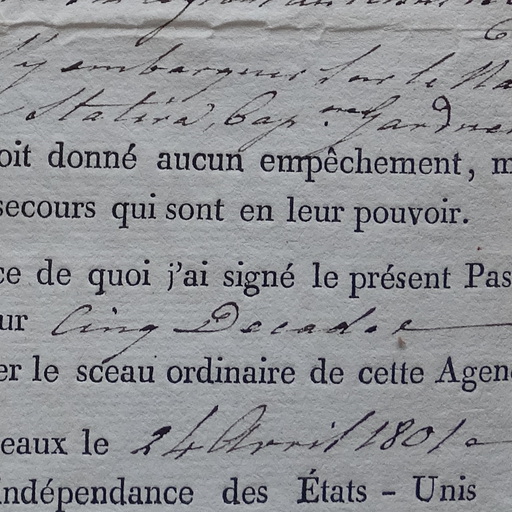 y embarquer sur le Na
Statira, Cap.ne Gardner
oit donné aucun empêchement, m
secours qui sont en leur pouvoir.
ce de quoi j'ai signé le présent Pas
ur Cinq Decades
er le sceau ordinaire de cette Agen
eaux le 24 Avril 1801
ndépendance des États - Unis